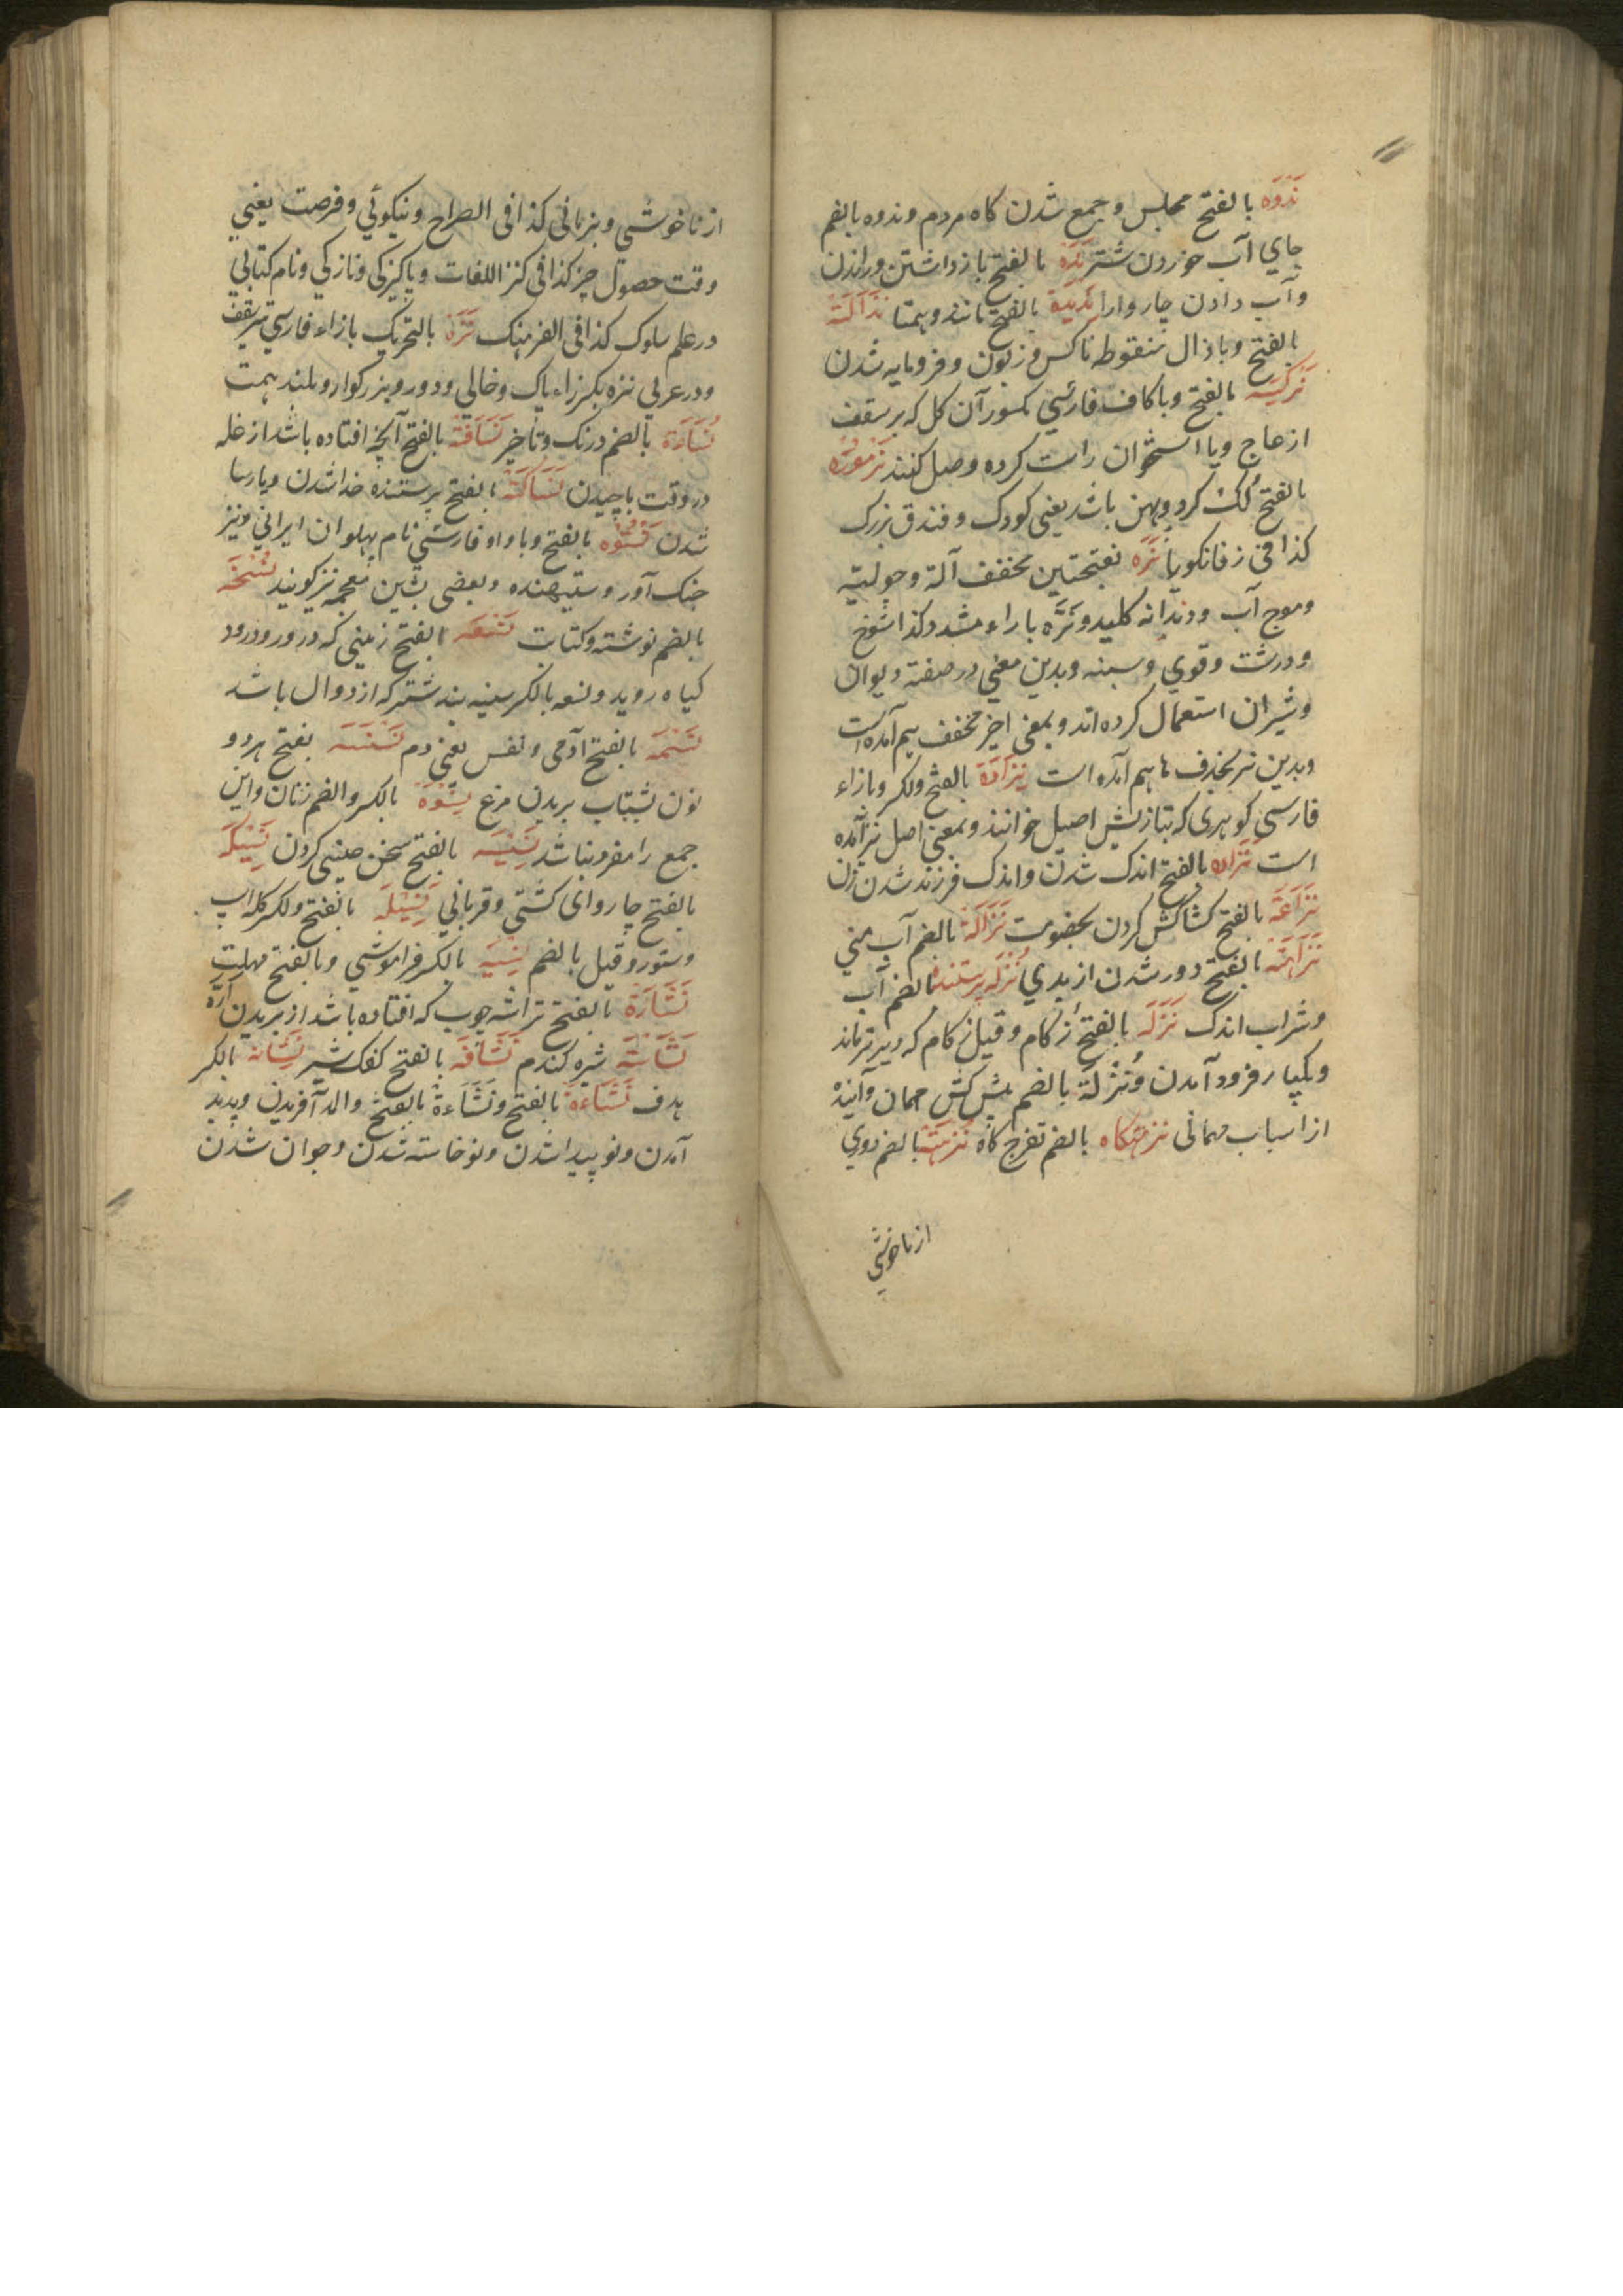 نَدْوَه بالفتح مجلس و جمع شدن کاه مردم و ندوه بالضم
جای آب خوردن شتر نَدَهْ بالفتح بازداشتن و راندن
و آب دادن چاروارا نَدِیْدَة بالفتح مانند و همتا نَذَالَة
بالفتح و باذال منقوطه ناکس و زبون و فرومایه شدن
نَرْکِسَه بالفتح و باکاف فارسی مکسور آن کل که بر سقف
از عاج و یا استخوان راست کرده وصل کنند نَرْمُوْرَه
بالفتح لُک کرد و پهن باشد یعنی کودک و فندق بزرک
کذا فی زفانکویا نَرَه بفتحتین مخفف آلة و جولیة
و موج آب و دندانه کلید و نَرَّه باراء مشدد کذا شوخ
و درشت و قوی و سبنه و بدین معنی در صفة دیوان
و شیران استعمال کرده اند و بمعنی اخیر مخفف هم آمده است
و بدین نر بحذف ها هم آمده است نِزَادَة بالفتح ولکسر و بازاء
فارسی کوهری که بتازیش اصیل خوانند و بمعنی اصل نیز آمده
است نَزَارَه بالفتح اندک شدن و اندک فرزند شدن زن
نَزَاعَة بالفتح کشاکش کردن بخصومت نُزَالَة بالضم آب منی
نَزَاهَة بالفتح دور شدن از بدی نُزْلَه پرستنده بالضم آب
و شراب اندک نَزْلَه بالفتح زکام و قیل زکام که دیر تر ماند
و یکبار فرود آمدن و نُزْلَة بالضم پیش کش مهمان و آینده
از اسباب مهمانی نزهتکاه بالضم تفرج کاه نُزْهَة بالضم دوری
از ناخوشی
از ناخوشی و بزبانی کذا فی الصراح و نیکوئی و فرصت یعنی
وقت حصول چیز کذا فی کنز اللغات و پاکیزکی و نازکی و نام کتابی
در علم سلوک کذا فی الفرهنک نَزَهْ بالتحریک بازاء فارسی تیر سقف
و در عربی نزه بکسر زاء پاک و خالی و دور و بزرکوار و بلند همت
نُسَاءَة بالضم درنک و تأخیر نَسَافَة بالفتح آنچه افتاده باشد از غله
در وقت باچیدن نَسَاکَة بالفتح پرستنده خدا شدن و پارسا
شدن نَسْتُوْه بالفتح و باواو فارسی نام پهلوان ایرانی و نیز
جنک آور و ستیهنده و بعضی بشین معجمه نیز کویند نُسْخَه
بالضم نوشته و کتاب نَسْعَه بالفتح زمینی که در و زود زود
کیاه روید و نسعه بالکسر سینه بند شتر که از دوال باشد
نَسَمَه بالفتح آدمی و نفس یعنی دم نَسْنَسَه بفتح هر دو
نون بشتاب پریدن مرغ نِسْوَة بالکسر و الضم زنان و این
جمع را مفرد نباشد نَسِیْسَه بالفتح سخن چینی کردن نَسِیْکَه
بالفتح چاروای کشتی و قربانی نَسِیْلَه بالفتح ولکسر کله اسپ
و ستور و قیل بالضم نِسْیَه بالکسر فراموشی و بالفتح مهلت
نَشَارَة بالفتح تراشه چوب که افتاده باشد از بریدن ارّه
نَشَاسْتَه شیره کندم نَشَافَه بالفتح کفک شیر نِشَانَه بالکسر
هدف نَشَاءَة بالفتح و نَشَاءَة بالفتح و المد آفریدن و پدید
آمدن و نو پیدا شدن و نو خاسته شدن و جوان شدن